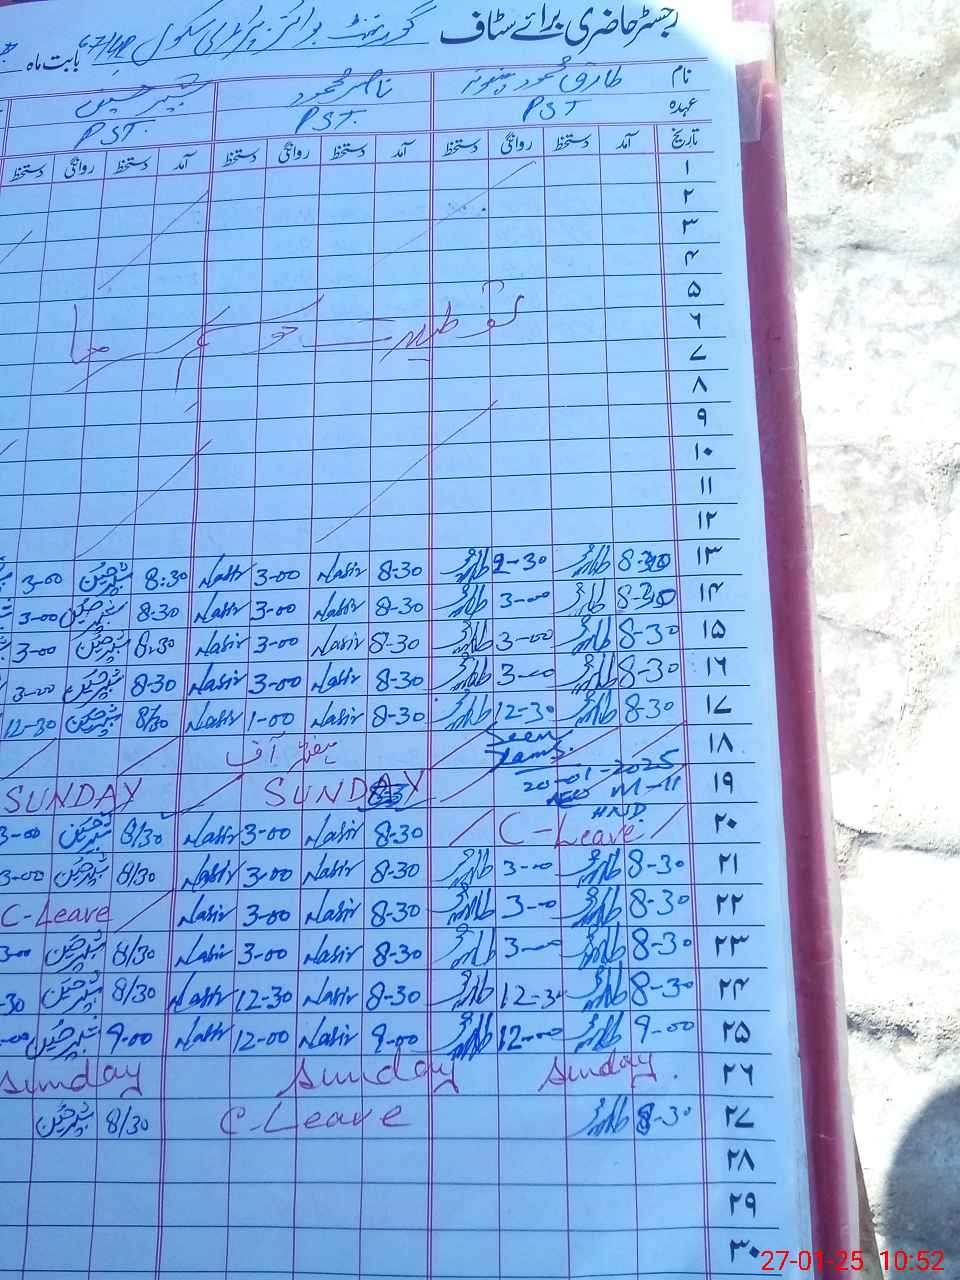 رجسٹر حاضری برائے سٹاف گورنمنٹ بوائز پرائمری سکول 67/4R بابت ماہ
نام طارق محمود ناصر محمود شبیر حسین
عہدہ PST PST. PST.
تاریخ آمد دستخط روانگی دستخط آمد دستخط روانگی دستخط آمد دستخط روانگی دستخط
۱
۲
۳
۴
۵
۶ تعطیلات موسم سرما
۷
۸
۹
۱۰
۱۱
۱۲
۱۳ 8-30 طارق 2-30 طارق 8-30 Nasir 3-00 Nasir 8:30 شبیر حسین 3-00
۱۴ 8-30 طارق 3-00 طارق 8-30 Nasir 3-00 Nasir 8-30 شبیر حسین 3-00
۱۵ 8-30 طارق 3-00 طارق 8-30 Nasir 3-00 Nasir 8-30 شبیر حسین 3-00
۱۶ 8-30 طارق 3-00 طارق 8-30 Nasir 3-00 Nasir 8-30 شبیر حسین 3-00
۱۷ 8-30 طارق 12-30 طارق 8-30 Nasir 1-00 Nasir 8/30 شبیر حسین 12-30
۱۸ Seen ہفتہ آف
۱۹ 20-01-2025 SUNDAY SUNDAY
M-11
HND
۲۰ C-Leave 8-30 Nasir 3-00 Nasir 8/30 شبیر حسین 3-00
۲۱ 8-30 طارق 3-00 طارق 8-30 Nasir 3-00 Nasir 8/30 شبیر حسین 3-00
۲۲ 8-30 طارق 3-00 طارق 8-30 Nasir 3-00 Nasir C-Leave
۲۳ 8-30 طارق 3-00 طارق 8-30 Nasir 3-00 Nasir 8/30 شبیر حسین 3-00
۲۴ 8-30 طارق 12-30 طارق 8-30 Nasir 12-30 Nasir 8/30 شبیر حسین -30
۲۵ 9-00 طارق 12-00 طارق 9-00 Nasir 12-00 Nasir 9-00 شبیر حسین -00
۲۶ Sunday. Sunday Sunday
۲۷ 8-30 طارق C-Leave 8/30 شبیر حسین
۲۸
۲۹
۳۰
27-01-25 10:52